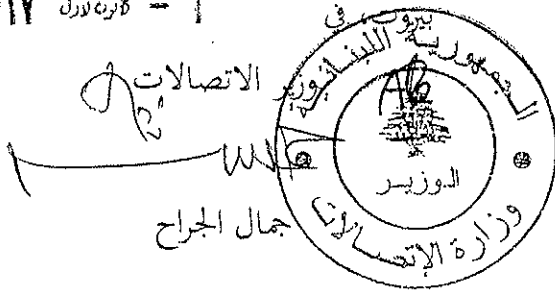 بيروت، في
١ - كانون الاول ١٧
وزير الاتصالات
جمال الجراح
الجمهورية اللبنانية
الوزير
وزارة الإتصالات